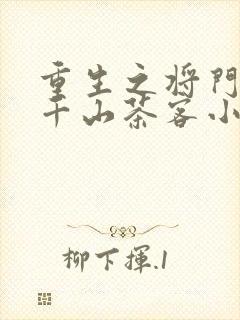 重生之将门
千山茶客小
柳下揮.1